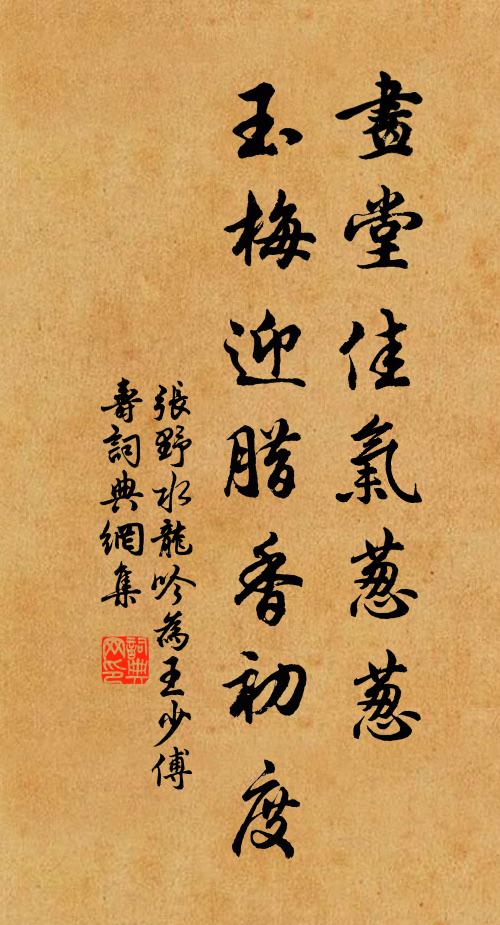 畫堂佳氣葱葱
玉梅迎腊香初度
張野水龍吟為王少傅
壽詞典網集
詞典
网印